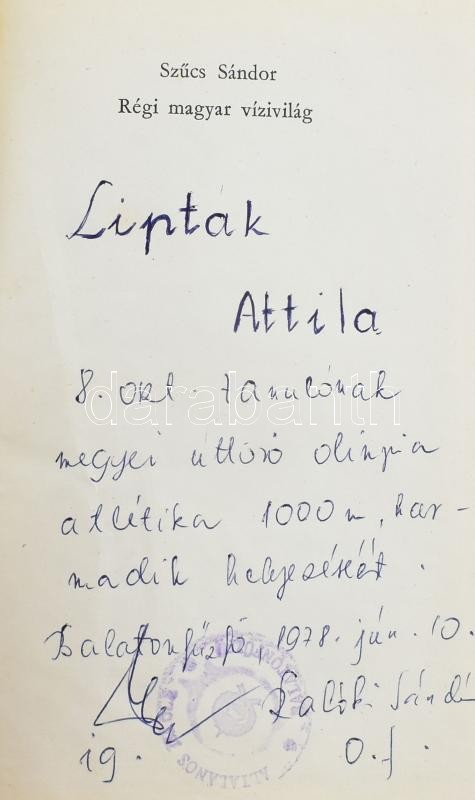 Szűcs Sándor
Régi magyar vízivilág
Liptak
Attila
8. okt. tanulónak
megyei úttörő olimpia
atlétika 1000 m, har-
madik helyezéséért.
Balatonfűzfő, 1978. jún. 10.
Sándor
ig. o.f.
darabanth
ÁLTALÁNOS